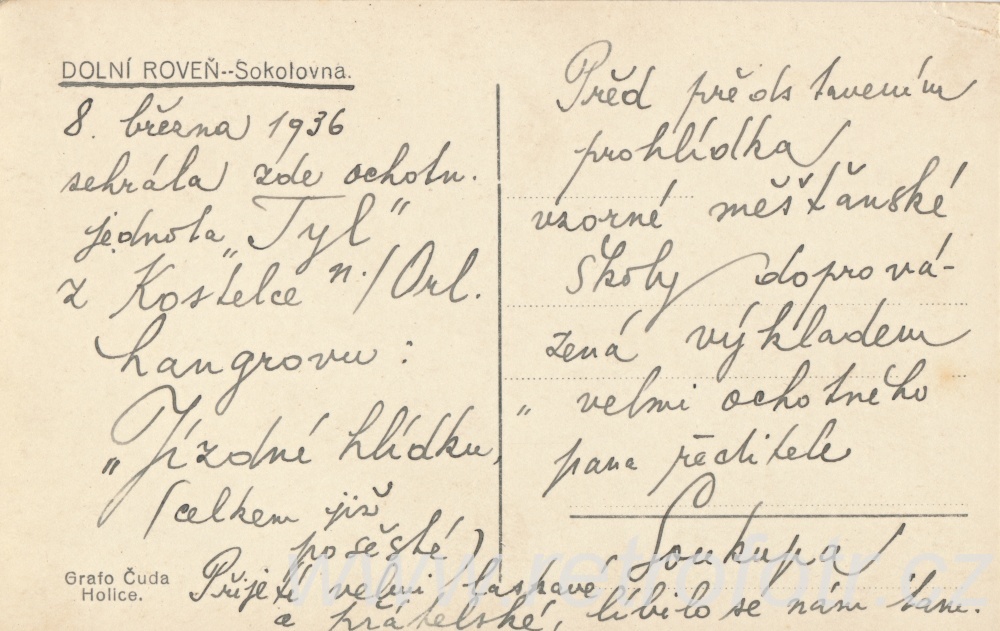 DOLNÍ ROVEŇ--Sokolovna.
8. března 1936
sehrála zde ochotn.
jednota „Tyl“
z Kostelce n./Orl.
Langrovu :
„Jízdní hlídku,
(celkem již
po šesté)
Přijetí velmi laskavé
a přátelské, líbilo se nám tam.
Grafo Čuda
Holice.
Před představením
prohlídka
vzorné měšťanské
školy doprová-
zená výkladem
„ velmi ochotného
pana ředitele
Soukupa
www.retrofotr.cz